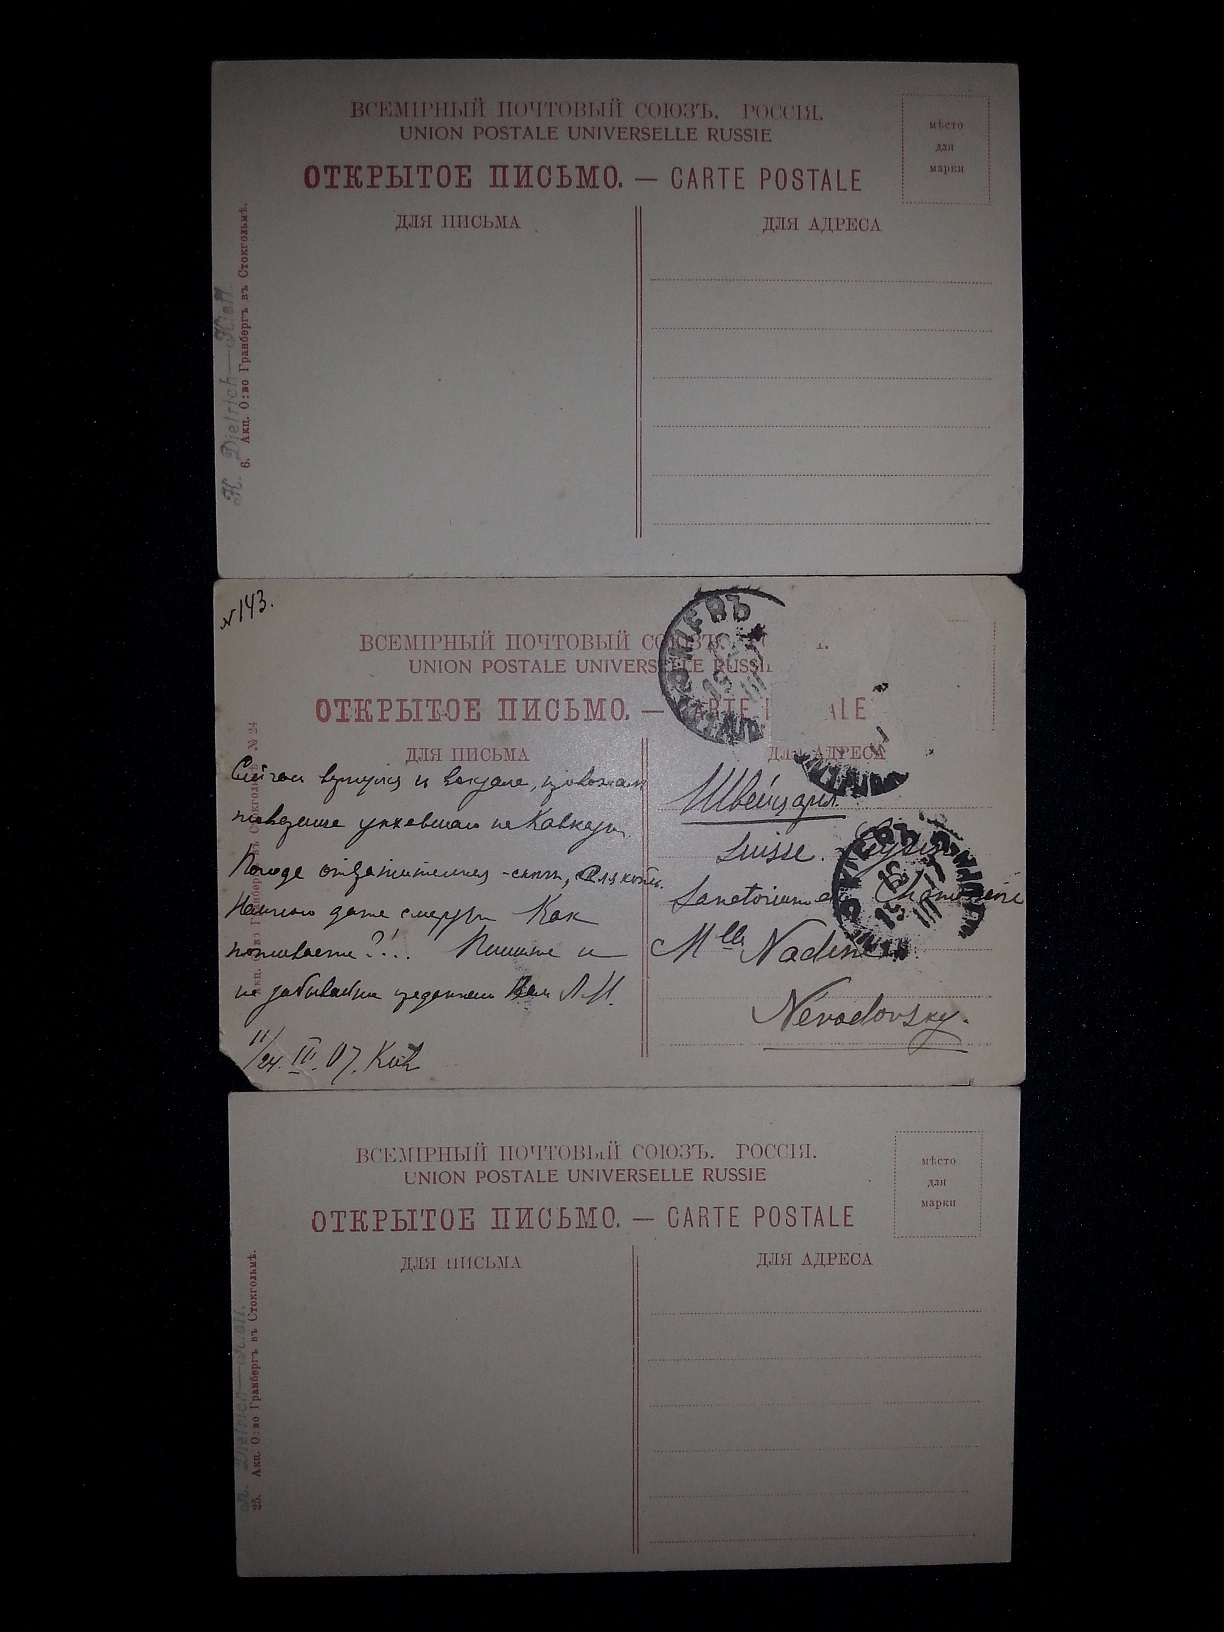 ВСЕМІРНЫЙ ПОЧТОВЫЙ СОЮЗЪ. РОССІЯ.
UNION POSTALE UNIVERSELLE RUSSIE
ОТКРЫТОЕ ПИСЬМО. — CARTE POSTALE
мѣсто
для
марки
ДЛЯ ПИСЬМА
ДЛЯ АДРЕСА
H. Dietrich—Kieff.
6. Акц. О:во Гранбергъ въ Стокгольмѣ.
№ 143.
ВСЕМІРНЫЙ ПОЧТОВЫЙ
UNION POSTALE UNIVERSELLE RUSSIE
ОТКРЫТОЕ ПИСЬМО. —
КІЕВЪ
ДЛЯ ПИСЬМА
ДЛЯ АДРЕСА
Акц. О:во Гранбергъ въ Стокгольмѣ № 24
Сейчас вернулся с вокзала, провожал
уехавшаго на Кавказ.
Погода отвратительная
даже Как
поживаете?!. Пишите и
не забывайте Вам Л.М.
11/24. III. 07. Кіев
Швейцарія.
Suisse.
Sanatorium
КІЕВЪ
Mlle Nadine
Névodovsky.
ВСЕМІРНЫЙ ПОЧТОВЫЙ СОЮЗЪ. РОССІЯ.
UNION POSTALE UNIVERSELLE RUSSIE
ОТКРЫТОЕ ПИСЬМО. — CARTE POSTALE
мѣсто
для
марки
ДЛЯ ПИСЬМА
ДЛЯ АДРЕСА
H. Dietrich—Kieff.
25. Акц. О:во Гранбергъ въ Стокгольмѣ.